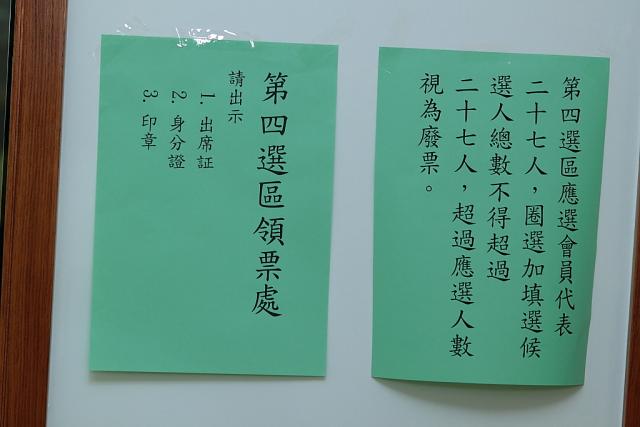 第四選區應選會員代表
二十七人，圈選加填選候
選人總數不得超過
二十七人，超過應選人數
視為廢票。
第四選區領票處
請出示
1. 出席証
2. 身分證
3. 印章